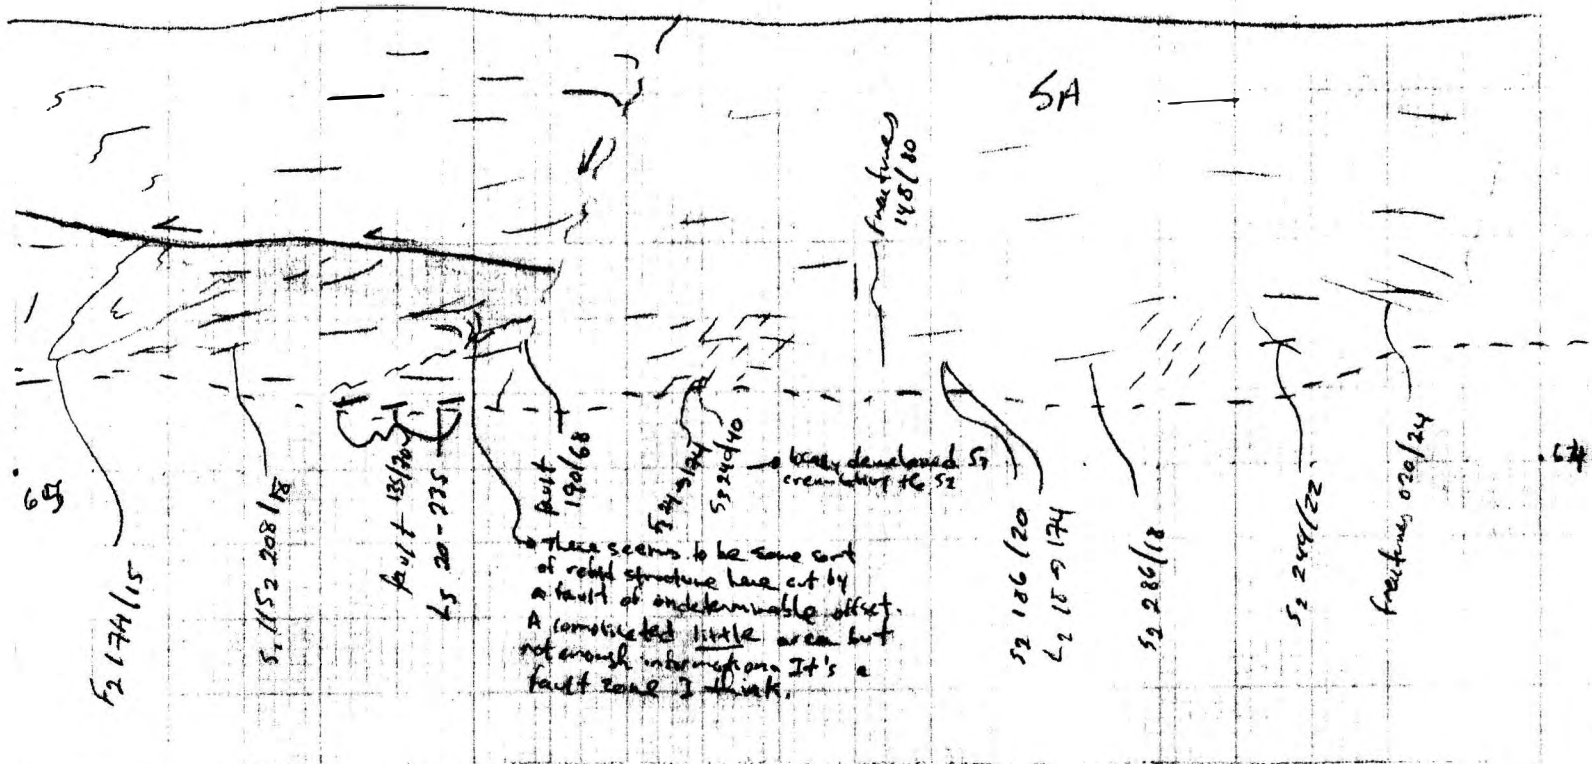 5A
fractures
148/80
675
674
F2 174/15
S1 11S2 208/18
fault 135/70
L5 20-235
fault
190/68
S3 240/40
locally developed
crenulating the S2
There seems to be some sort
of refold structure here cut by
a fault of undeterminable offset.
A complicated little area but
not enough information. It's a
fault zone I think.
S2 186/20
L2 15→174
S2 286/18
S2 244/22
fractures 020/24